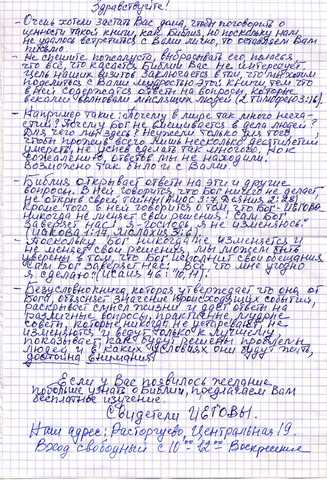 Здравствуйте!
- Очень хотели застать Вас дома, чтобы поговорить о
ценности такой книги, как Библия, но поскольку нам
не удалось встретится с Вами лично, то оставляем Вам
письмо.
- Не спешите пожалуйста, выбрасывать его, надеясь
что всё, что касается Библии Вас не интересует.
Цель наших визитов заключается в том, что мы хотим
поделится с Вами мудростью Этой книги тем что
в ней содержатся ответы на вопросы, которые
веками волновали мыслящих людей (2 Тимофею 3:16).
- Например такие: почему в мире так много несча-
стий? Почему Бог не вмешивается в дела людей?
Для чего мы здесь? Неужели только для того,
чтобы прожив всего лишь несколько десятилетий
умереть, не успев сделать так многого. Но к
сожалению, ответов мы не находили.
Возможно так было и с Вами.
- Библия открывает ответы на эти и другие
вопросы. В ней говорится, что Бог ничего не делает,
не открыв своей тайны (Амос 3:7,
Кроме того в ней говорится о том, что Бог ИЕГОВА
никогда не меняет свои решения! Сам Бог
заверяет нас: Я - Господь, я не изменяюсь.
(Иакова 1:17, Малахия 3:6).
- Поскольку Бог никогда не изменяется и
не меняет свои решения, мы можем быть
уверены в том, что Бог исполнит свои обещания
Сам Бог заверяет нас: Всё, что мне угодно
я сделаю! (Исаия 46:10, 11).
- Безусловно книга, которая утверждает что она от
Бога, объясняет значение происходящих событий,
раскрывает смысл жизни и даёт ответ на
различные вопросы, практичные, мудрые
советы, которые никогда не устаревают, не
изменяются и ведут только к лучшему,
показывает как будут решены проблемы
людей и в каких условиях они будут жить,
достойна внимания!
Если у Вас появилось желание
побольше узнать о Библии, предлагаем Вам
бесплатное изучение.
Свидетели ИЕГОВЫ.
Наш адрес: Расторгуево, Центральная 19.
Вход свободный с 10⁰⁰ - 12⁰⁰ Воскресение